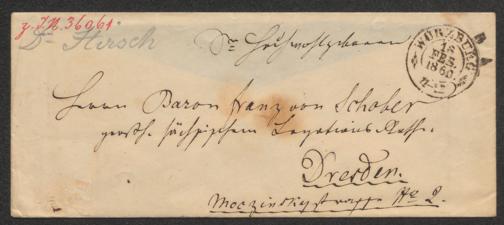 z. J.N. 36961
Dr Hersch
Sr Hochwohlgeboren
WÜRZBURG
18
FEB.
1860
Herrn Baron Franz von Schober
großh. sächsischem Legations-Rathe.
Dresden.
Moczinskystrasse No 2.